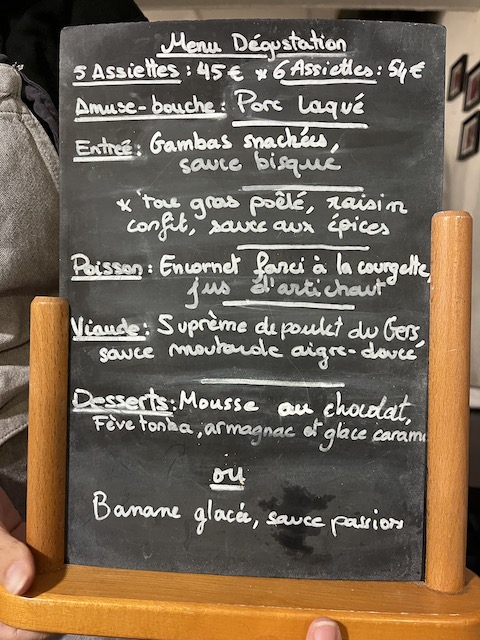 Menu Dégustation
5 Assiettes : 45 € * 6 Assiettes : 54 €
Amuse-bouche : Porc laqué
Entrée : Gambas snackées,
sauce bisque
* Foie gras poêlé, raisin
confit, sauce aux épices
Poisson : Encornet farci à la courgette,
jus d'artichaut
Viande : Suprême de poulet du Gers,
sauce moutarde aigre-douce
Desserts : Mousse au chocolat,
Fève tonka, armagnac et glace caram
ou
Banane glacée, sauce passion